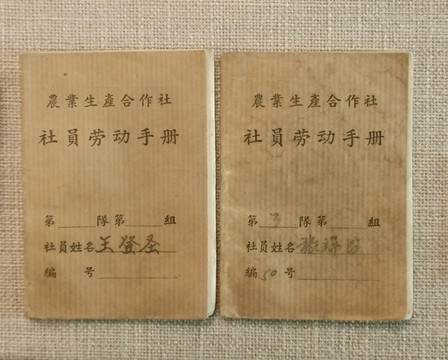 農業生產合作社
社員劳动手册
第 隊第 組
社員姓名王登圣
編 号
農業生產合作社
社員劳动手册
第3隊第 組
社員姓名张
編50号